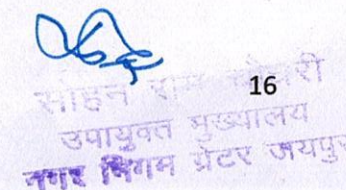 सोहन राम चौधरी
16
उपायुक्त मुख्यालय
नगर निगम ग्रेटर जयपुर